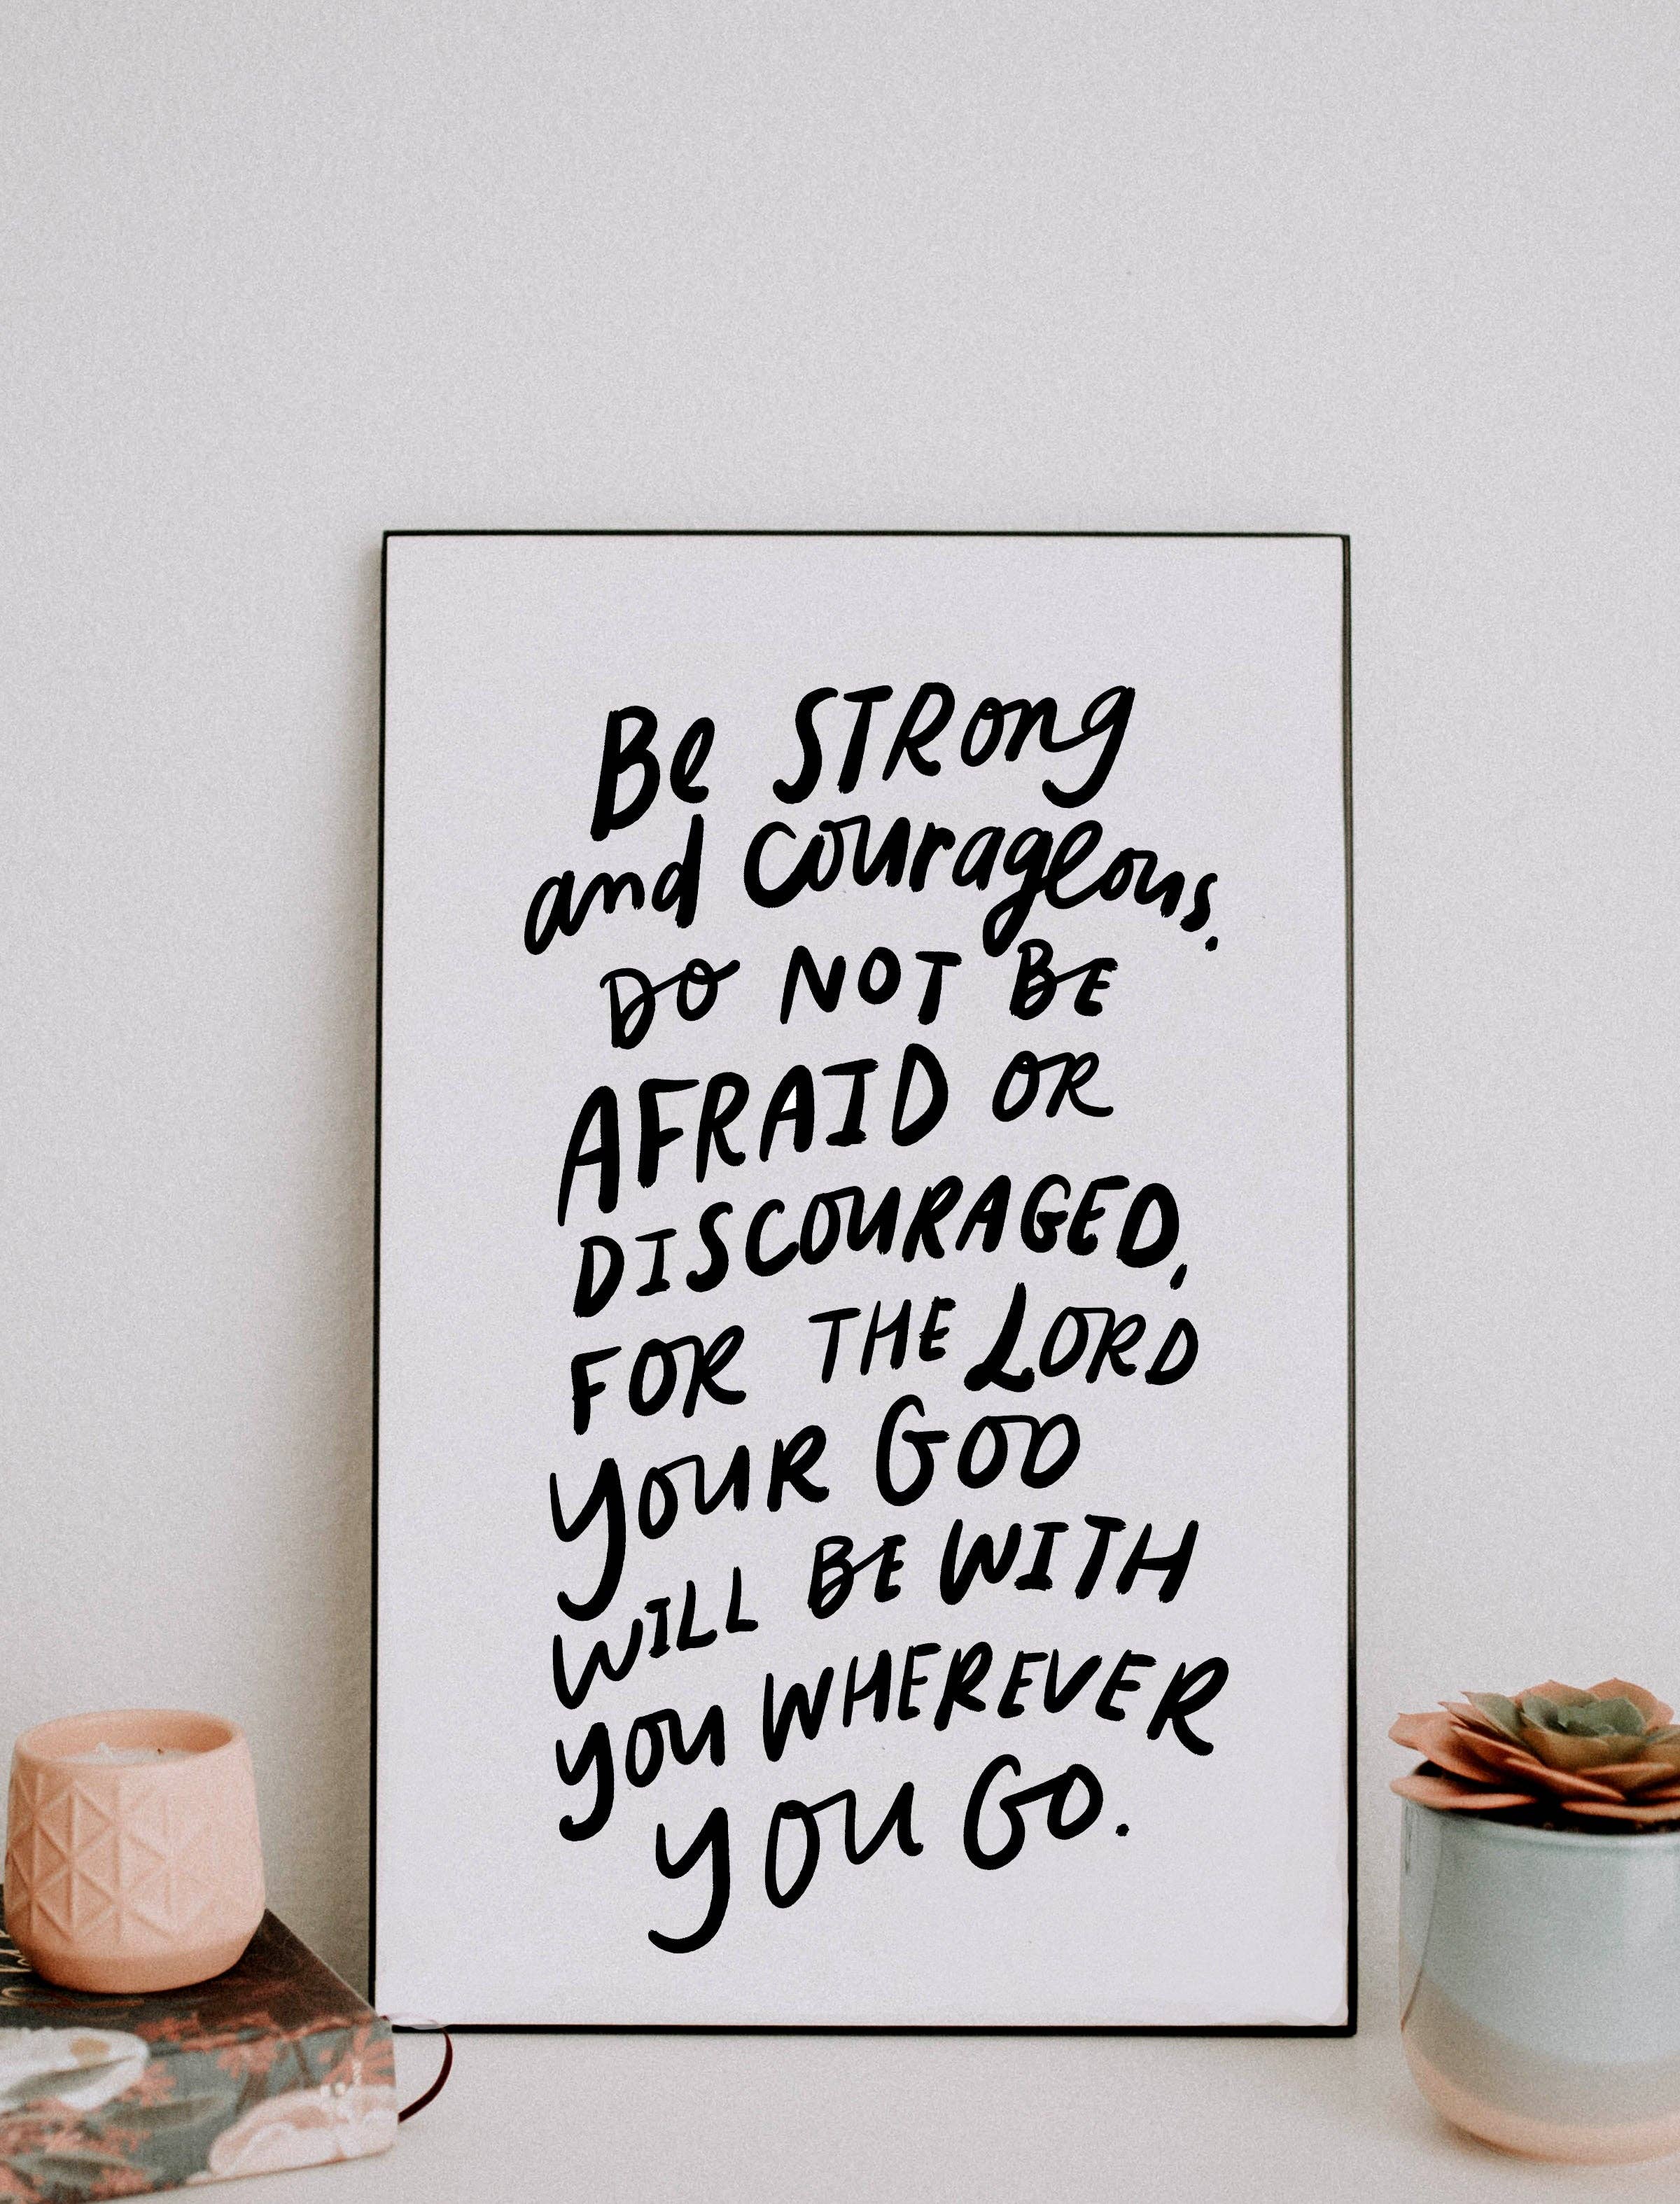 Be STRong
and courageous.
DO NOT BE
AFRAID OR
DISCOURAGED,
FOR THE LORD
YOUR GOD
WILL BE WITH
you WHEREVER
YOU GO.